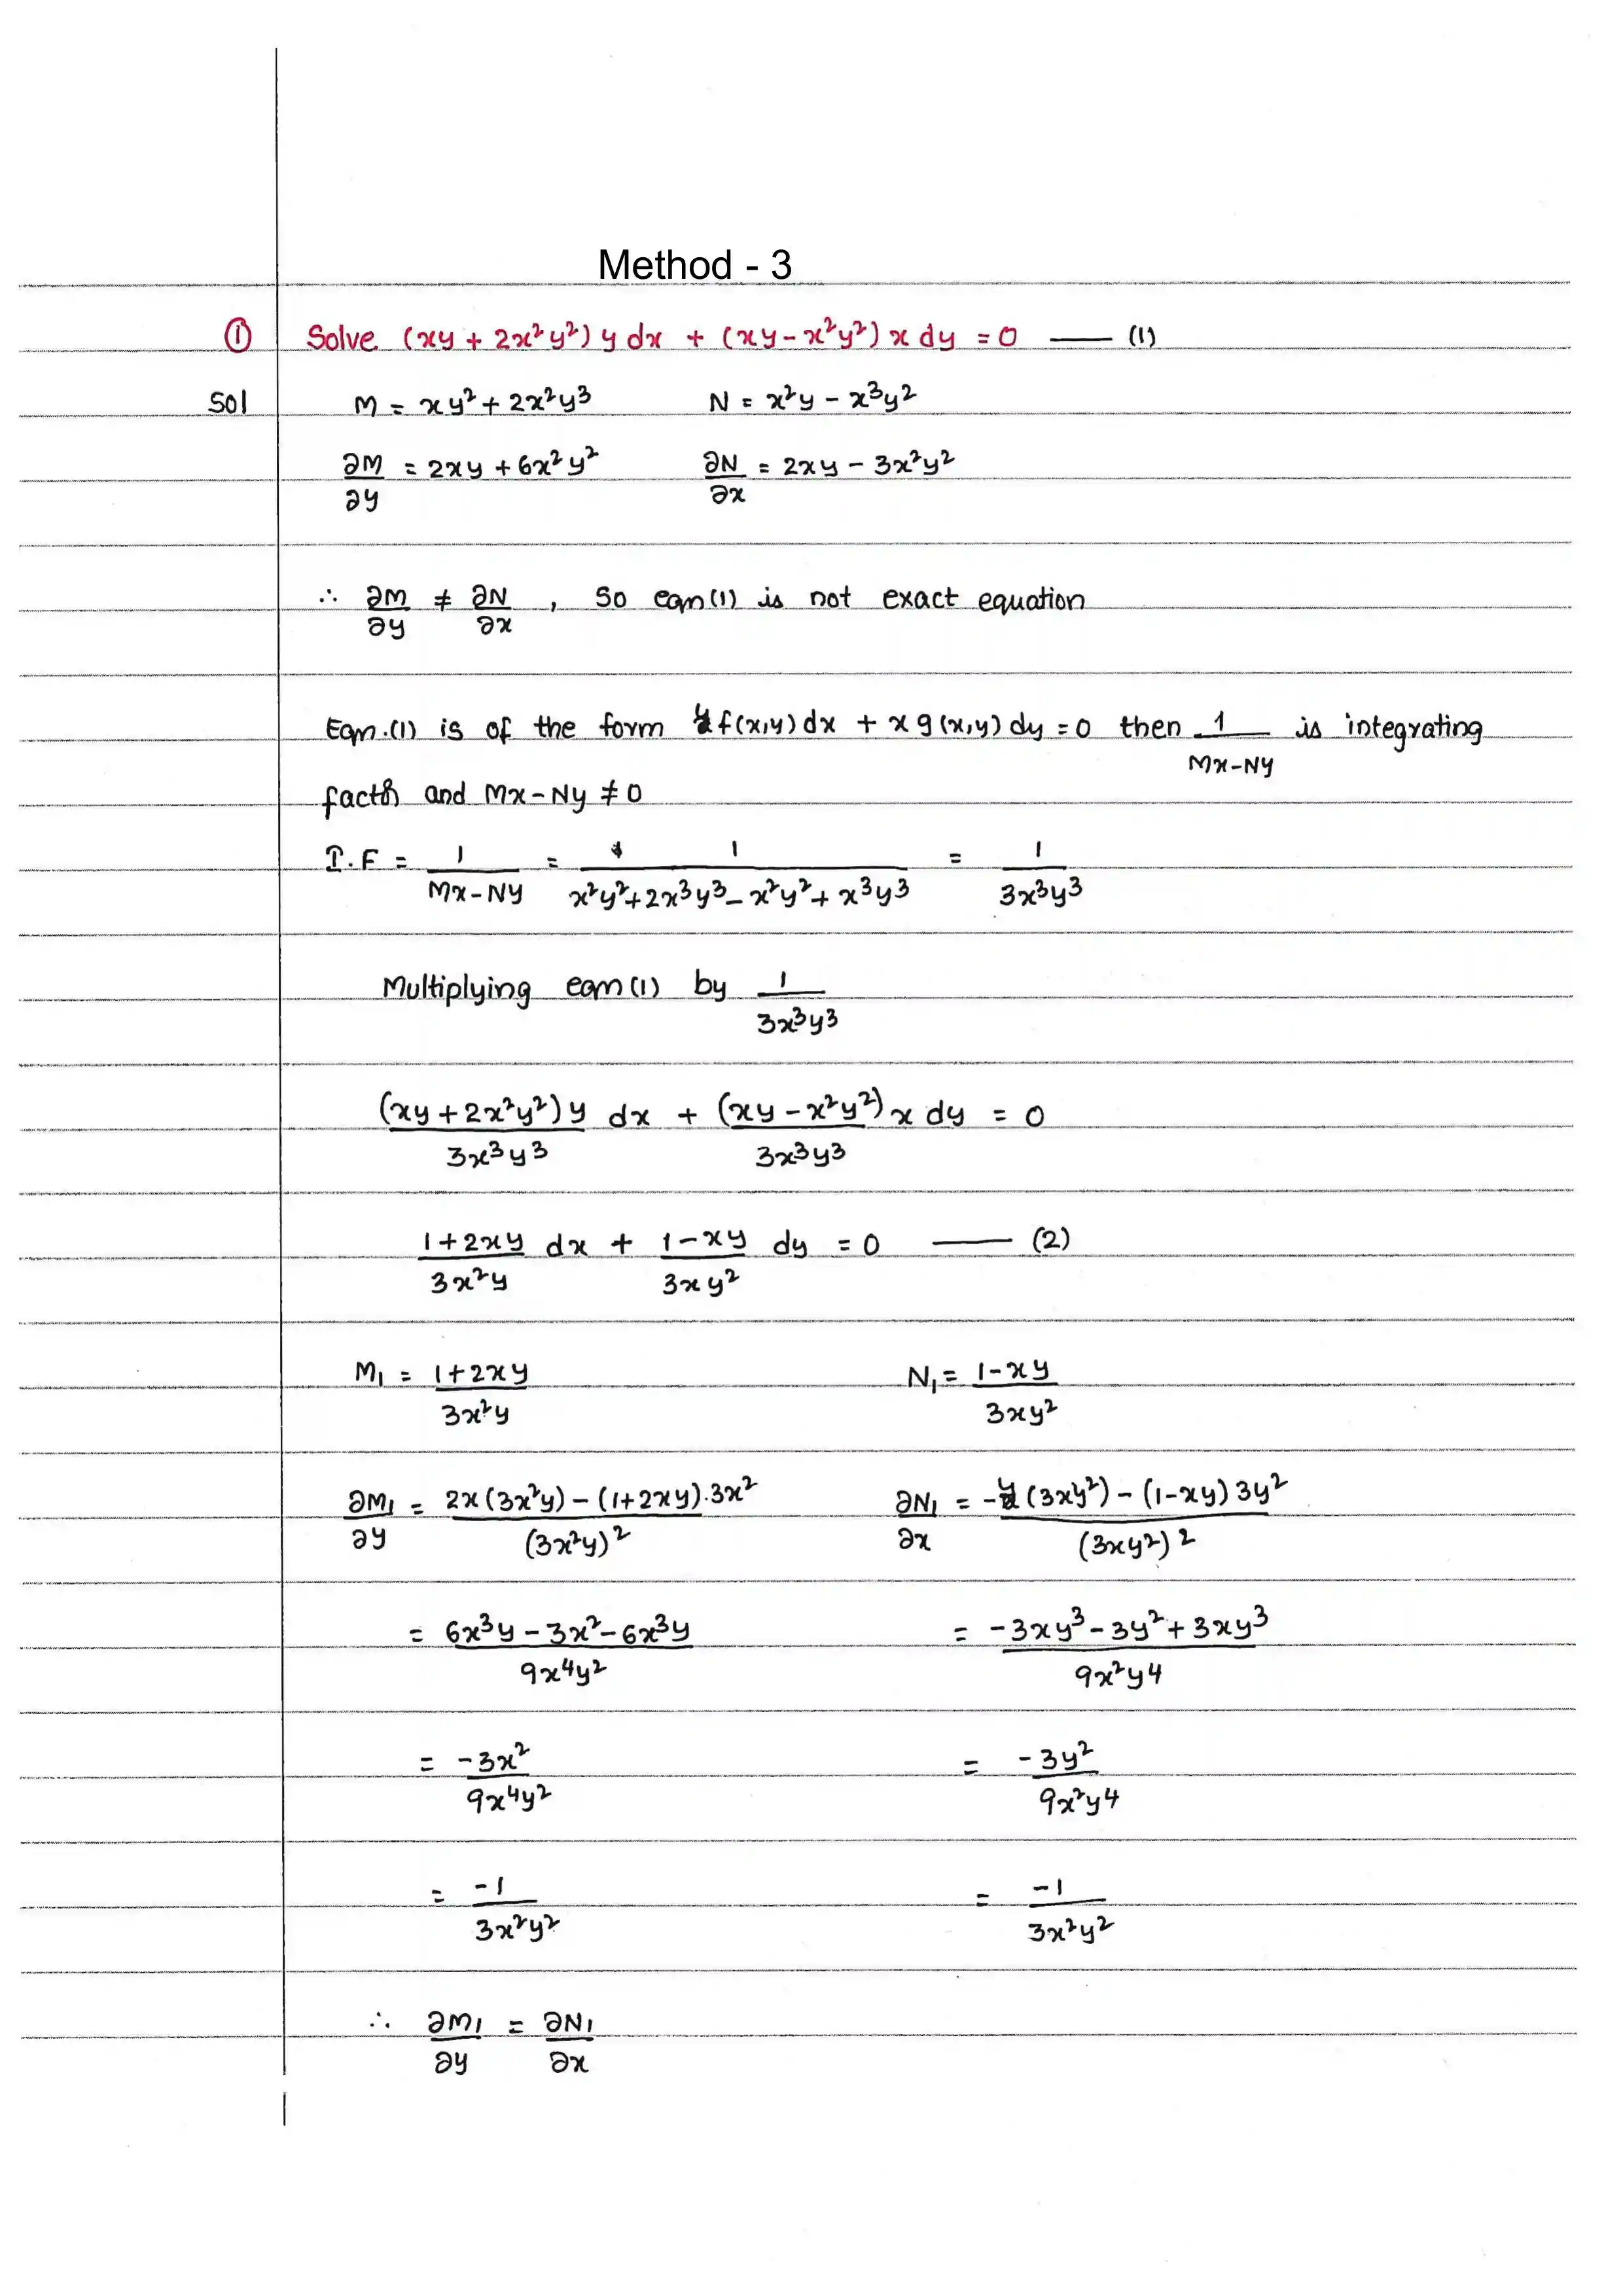 Method - 3
① Solve (xy + 2x²y²) y dx + (xy - x²y²) x dy = 0 —— (1)
Sol M = xy² + 2x²y³ N = x²y - x³y²
∂M/∂y = 2xy + 6x²y² ∂N/∂x = 2xy - 3x²y²
∴ ∂M/∂y ≠ ∂N/∂x , So eqn(1) is not exact equation
Eqn.(1) is of the form y f(x,y) dx + x g(x,y) dy = 0 then 1/(Mx-Ny) is integrating
factor and Mx - Ny ≠ 0
I.F = 1/(Mx-Ny) = 1/(x²y²+2x³y³-x²y²+x³y³) = 1/(3x³y³)
Multiplying eqn(1) by 1/(3x³y³)
(xy+2x²y²)y/(3x³y³) dx + (xy-x²y²)/(3x³y³) x dy = 0
(1+2xy)/(3x²y) dx + (1-xy)/(3xy²) dy = 0 —— (2)
M₁ = (1+2xy)/(3x²y) N₁ = (1-xy)/(3xy²)
∂M₁/∂y = (2x(3x²y)-(1+2xy).3x²)/(3x²y)² ∂N₁/∂x = (-y(3xy²)-(1-xy)3y²)/(3xy²)²
= (6x³y-3x²-6x³y)/(9x⁴y²) = (-3xy³-3y²+3xy³)/(9x²y⁴)
= -3x²/(9x⁴y²) = -3y²/(9x²y⁴)
= -1/(3x²y²) = -1/(3x²y²)
∴ ∂M₁/∂y = ∂N₁/∂x